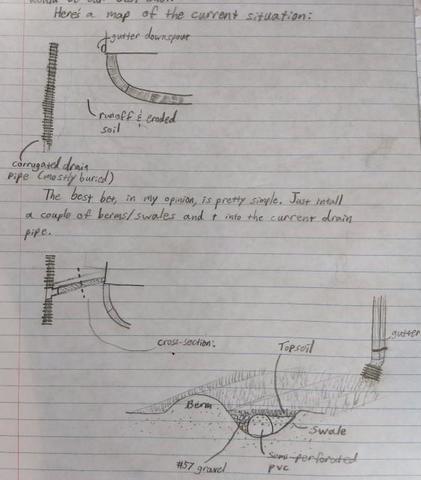 Here's a map of the current situation:
gutter downspout
runoff & eroded
soil
corrugated drain
pipe (mostly buried)
The best bet, in my opinion, is pretty simple. Just intall
a couple of berms/swales and t into the current drain
pipe.
cross-section:
gutter
Topsoil
Berm
Swale
#57 gravel
perforated
pvc